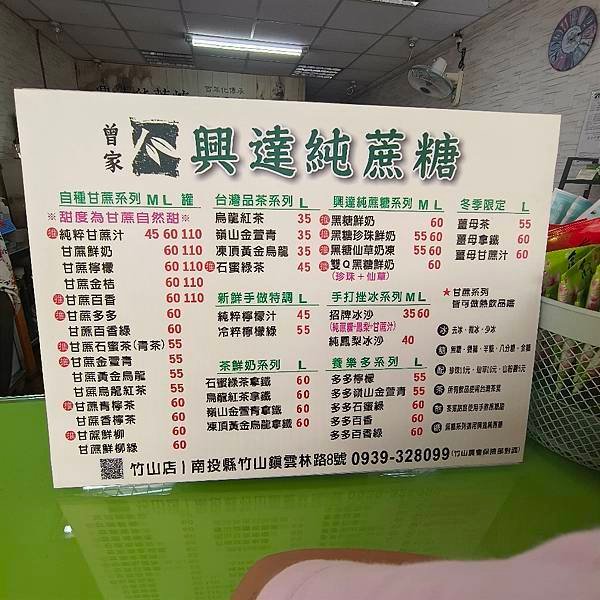 百年化傳承
曾家
興達純蔗糖
自種甘蔗系列 M L 罐
※甜度為甘蔗自然甜※
推 純粹甘蔗汁 45 60 110
甘蔗鮮奶 60 110
甘蔗檸檬 60 110
甘蔗金桔 60 110
推 甘蔗百香 60 110
推 甘蔗多多 60
甘蔗百香綠 60
推 甘蔗石蜜茶(青茶) 55
推 甘蔗金萱青 55
甘蔗黃金烏龍 55
甘蔗烏龍紅茶 55
推 甘蔗青檸茶 60
甘蔗香檸茶 60
推 甘蔗鮮柳 60
甘蔗鮮柳綠 60
台灣品茶系列 L
烏龍紅茶 35
嶺山金萱青 35
凍頂黃金烏龍 35
推 石蜜綠茶 45
新鮮手做特調 L
純粹檸檬汁 45
冷粹檸檬綠 55
茶鮮奶系列 L
石蜜綠茶拿鐵 60
烏龍紅茶拿鐵 60
嶺山金萱青拿鐵 60
凍頂黃金烏龍拿鐵 60
興達純蔗糖系列 M L
推 黑糖鮮奶 60
推 黑糖珍珠鮮奶 55 60
推 黑糖仙草奶凍 55 60
推 雙Q黑糖鮮奶 60
(珍珠+仙草)
手打挫冰系列 M L
招牌冰沙 35 60
(純蔗糖+鳳梨+甘蔗汁)
純鳳梨冰沙 40
養樂多系列 L
多多檸檬 55
多多嶺山金萱青 55
多多石蜜綠 60
多多百香 60
多多百香綠 60
冬季限定 L
薑母茶 55
薑母拿鐵 60
薑母甘蔗汁 60
★甘蔗系列
皆可做熱飲品嚐
冰 去冰、微冰、少冰
竹山店 | 南投縣竹山鎮雲林路8號 0939-328099 (竹山農會保險部對面)